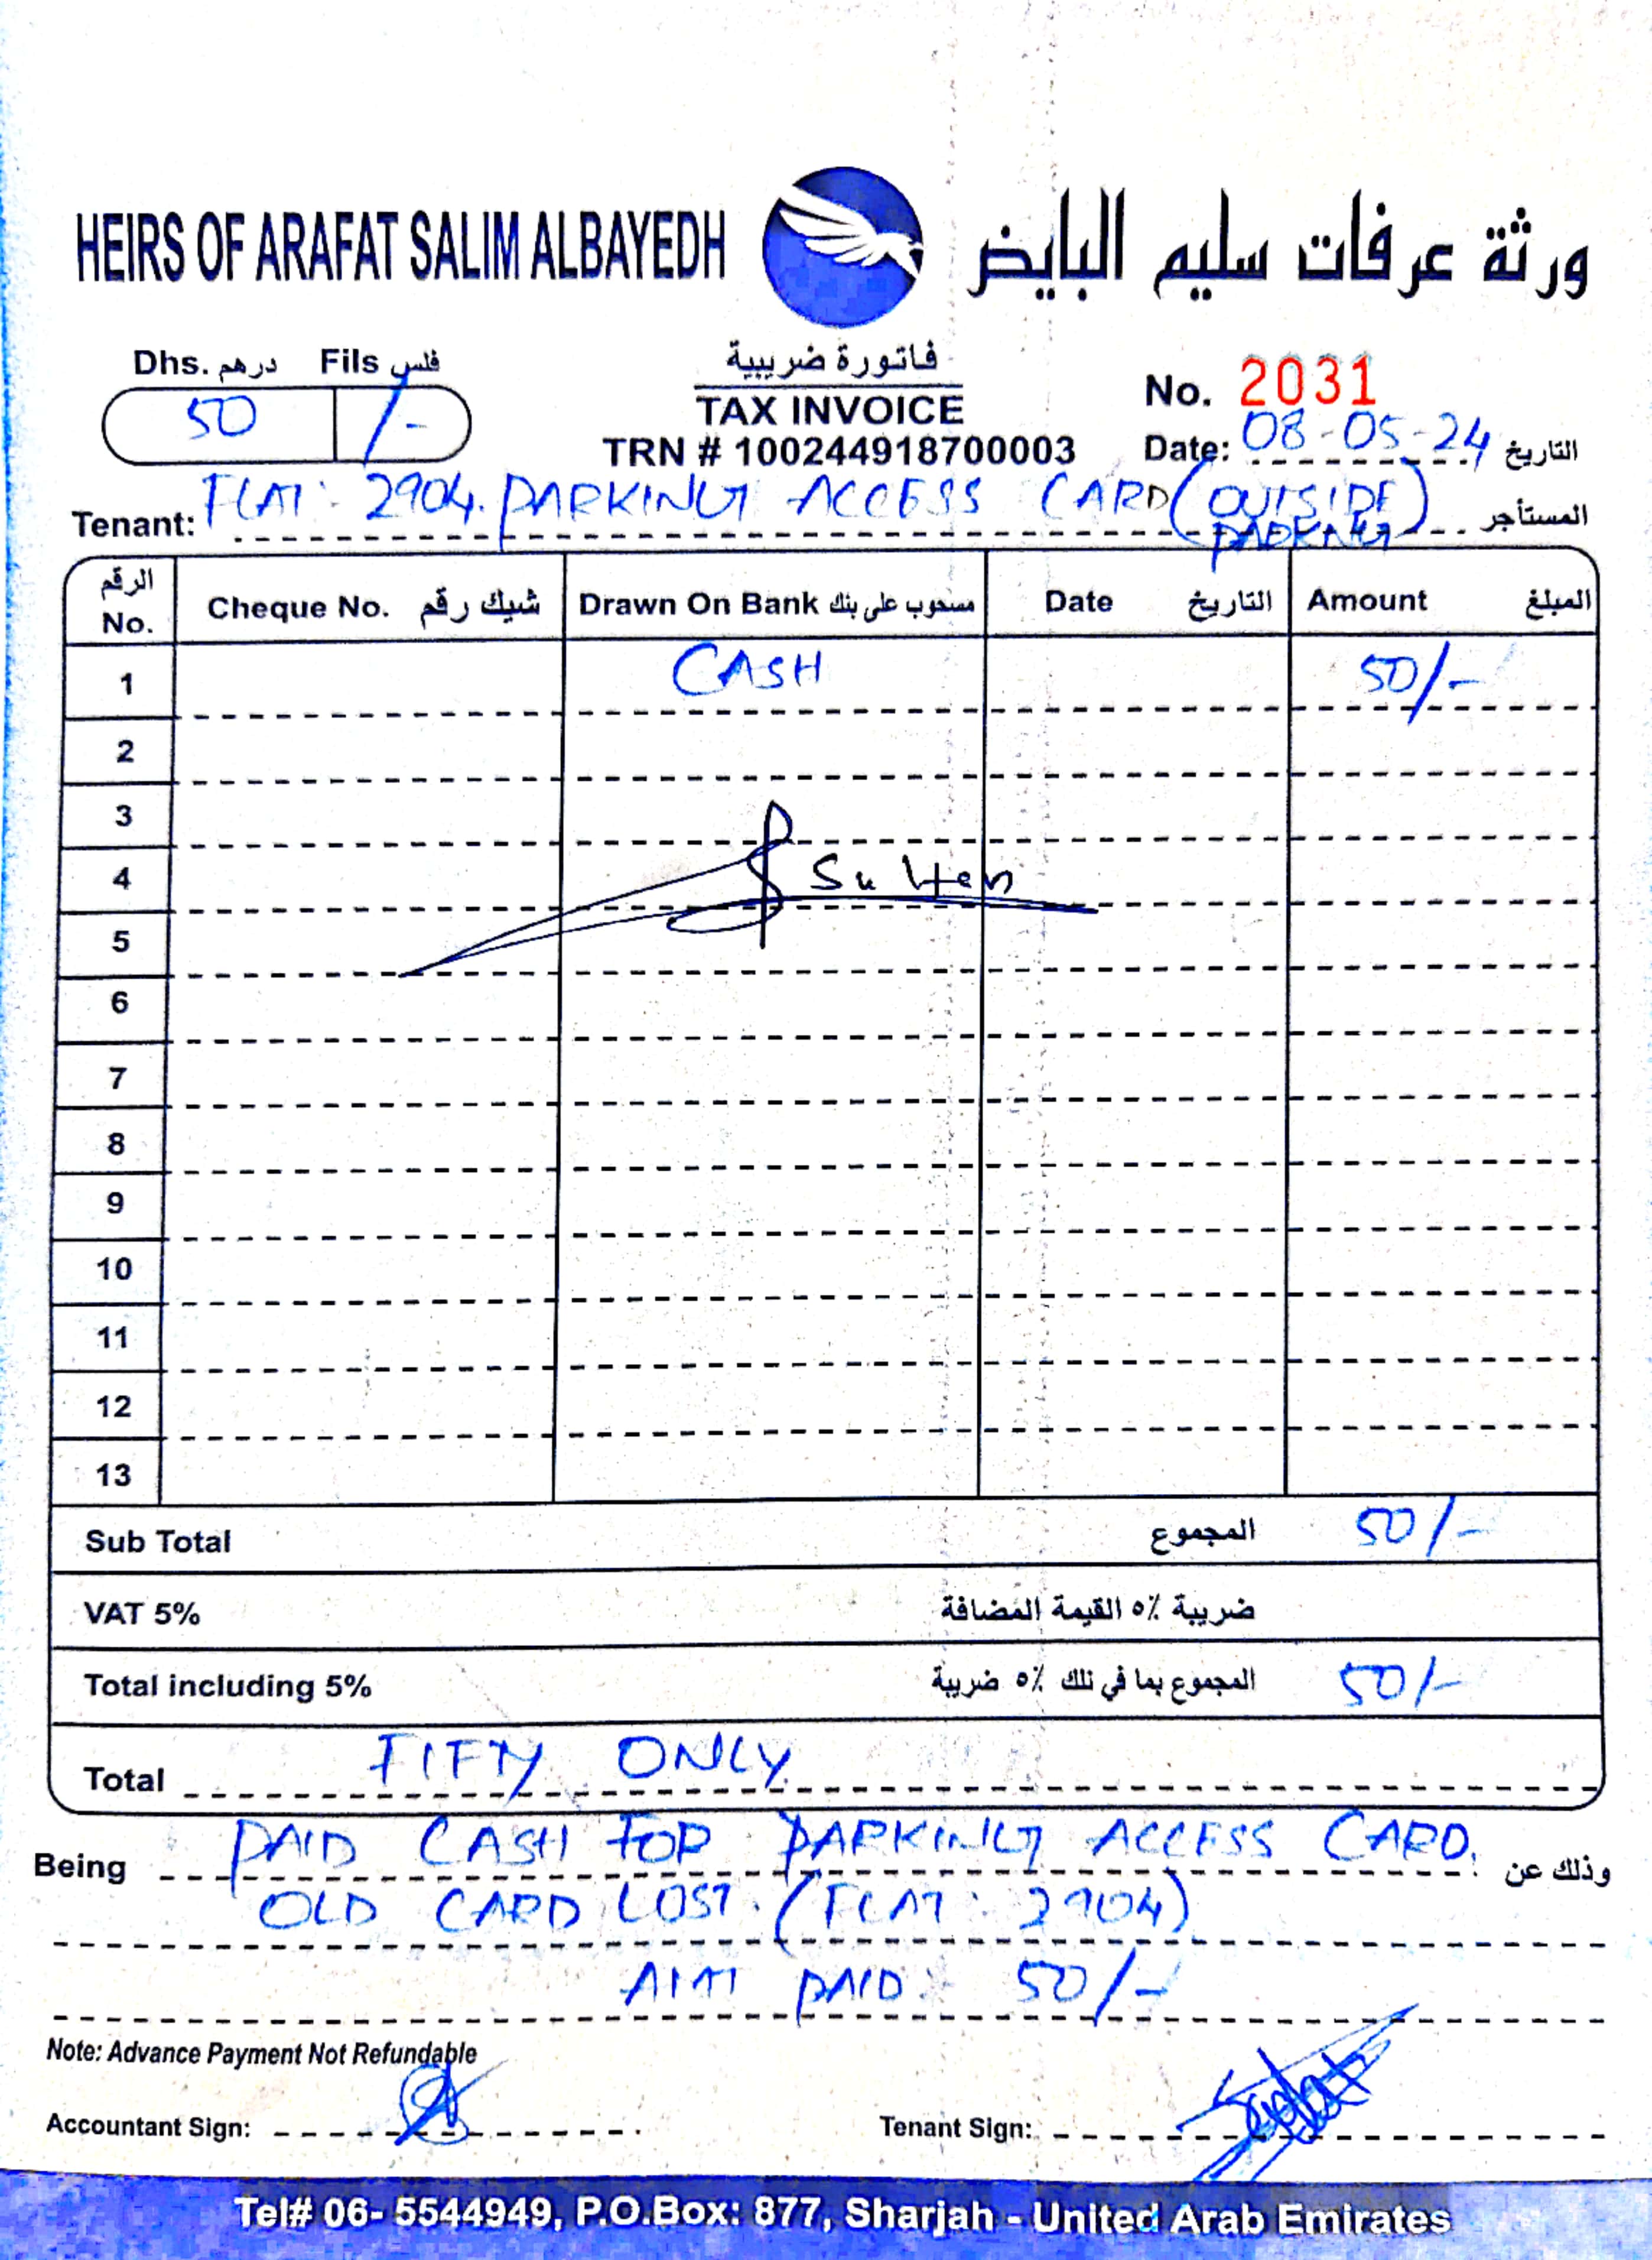 HEIRS OF ARAFAT SALIM ALBAYEDH ورثة عرفات سليم البايض
Dhs. درهم Fils فلس
50 /-
فاتورة ضريبية
TAX INVOICE
TRN # 100244918700003
No. 2031
Date: 08-05-24 التاريخ
Tenant: FLAT: 2904. PARKING ACCESS CARD (OUTSIDE المستأجر
PARKING)
الرقم No. Cheque No. شيك رقم Drawn On Bank مسحوب على بنك Date التاريخ Amount المبلغ
1 CASH 50/-
2
3
4 Sulten
5
6
7
8
9
10
11
12
13
Sub Total المجموع 50/-
VAT 5% ضريبة ٥٪ القيمة المضافة
Total including 5% المجموع بما في ذلك ٥٪ ضريبة 50/-
Total FIFTY ONLY
Being PAID CASH FOR PARKING ACCESS CARD. وذلك عن
OLD CARD LOST. (FLAT: 2904)
AMT PAID: 50/-
Note: Advance Payment Not Refundable
Accountant Sign: Tenant Sign:
Tel# 06- 5544949, P.O.Box: 877, Sharjah - United Arab Emirates